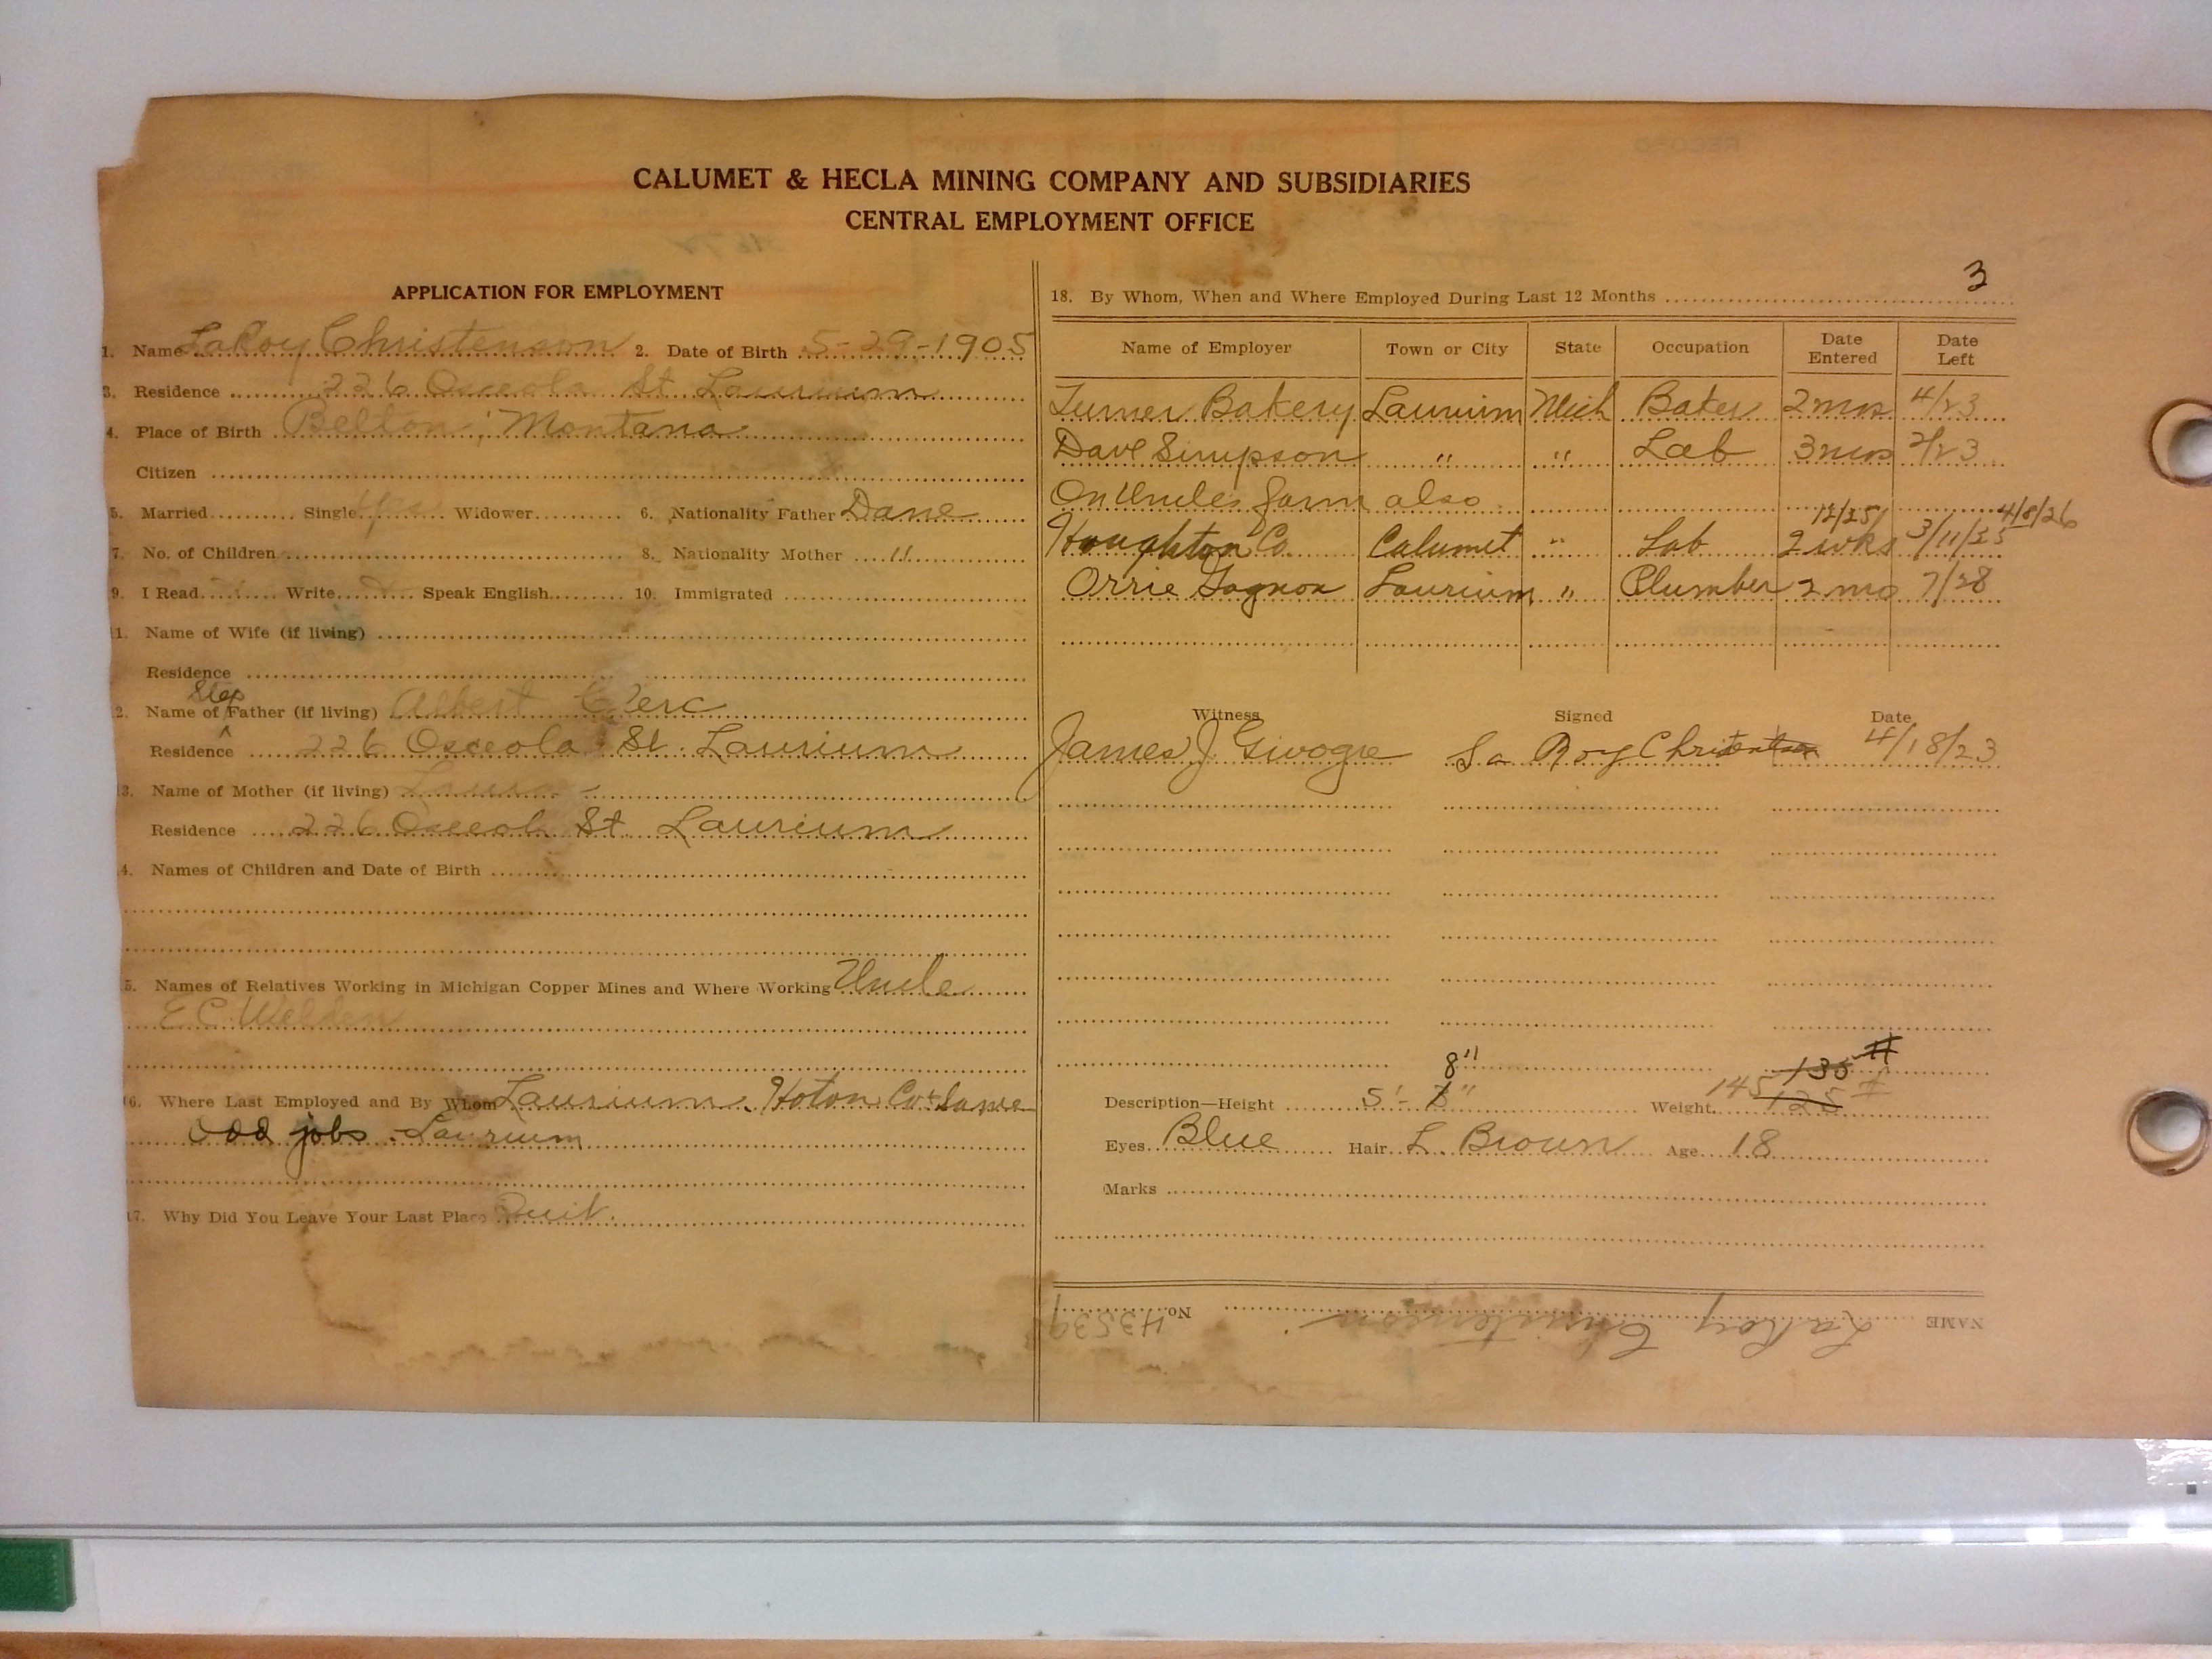 CALUMET & HECLA MINING COMPANY AND SUBSIDIARIES
CENTRAL EMPLOYMENT OFFICE
APPLICATION FOR EMPLOYMENT
1. Name LaRoy Christenson 2. Date of Birth 5-29-1905
3. Residence 226 Osceola St Laurium
4. Place of Birth Belton, Montana
Citizen
5. Married Single Yes Widower 6. Nationality Father Dane
7. No. of Children 8. Nationality Mother "
9. I Read Write Speak English 10. Immigrated
11. Name of Wife (if living)
Residence
Step
2. Name of ^ Father (if living) Albert Clerc
Residence 226 Osceola St. Laurium
3. Name of Mother (if living) Laura
Residence 226 Osceola St. Laurium
4. Names of Children and Date of Birth
5. Names of Relatives Working in Michigan Copper Mines and Where Working Uncle
E C Welden
16. Where Last Employed and By Whom Laurium. Hoton Co + same
Odd jobs - Laurium
17. Why Did You Leave Your Last Place Quit.
3
18. By Whom, When and Where Employed During Last 12 Months
Name of Employer Town or City State Occupation Date Entered Date Left
Turner Bakery Laurium Mich Baker 2 mos 4/23
Dave Simpson " " Lab 3 mos 2/23
On Uncles farm also
12/25/ 4/8/26
Houghton Co. Calumet " Lab 2 wks 3/11/25
Orrie Gagnon Laurium " Plumber 2 mo 7/28
Witness Signed Date
James J. Givogre La Roy Christenson 4/18/23
8" 135 #
Description—Height 5'- 7" Weight 145 125 #
Eyes Blue Hair L. Brown Age 18
Marks
NAME LaRoy Christenson No. 43539